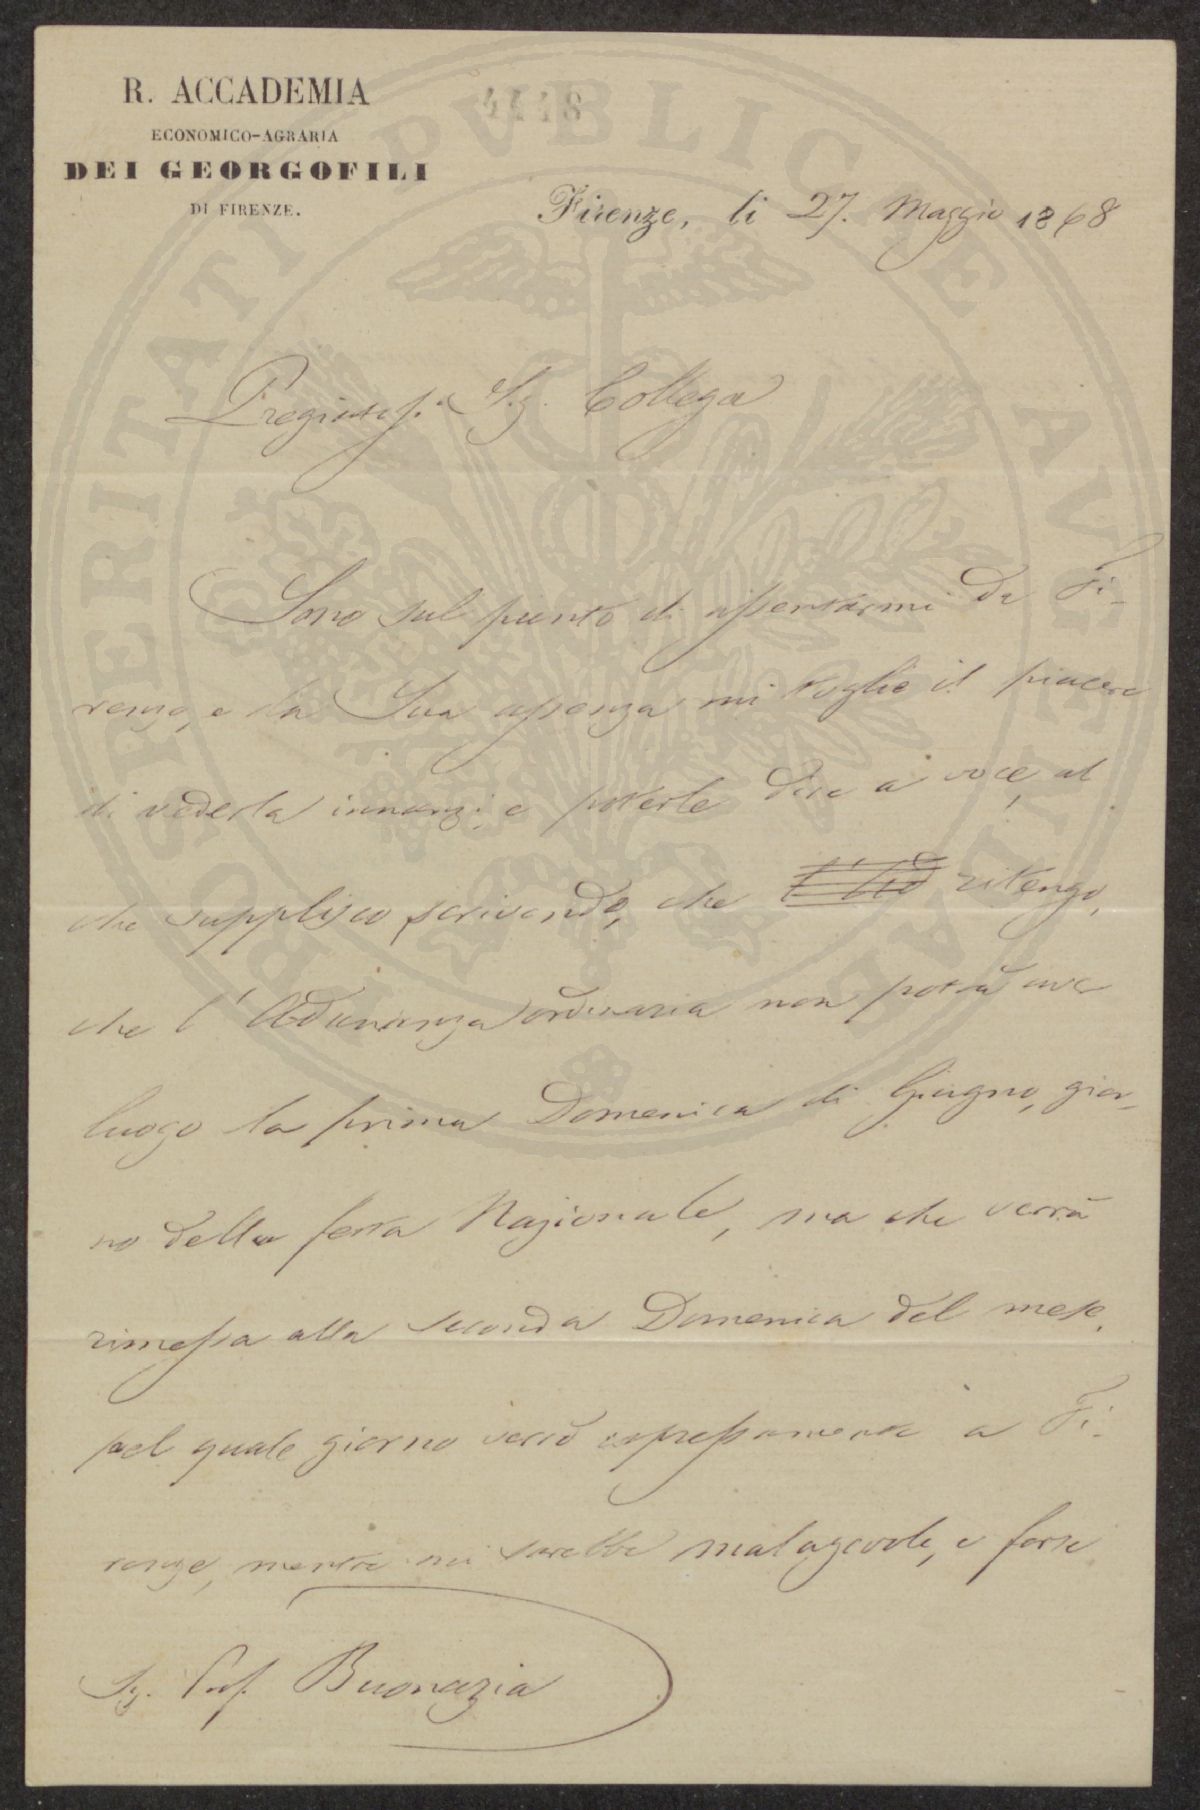 R. ACCADEMIA
ECONOMICO-AGRARIA
DEI GEORGOFILI
DI FIRENZE.
4448
Firenze, li 27. Maggio 1868
Pregiatess.º Sig. Collega
Sono sul punto di assentarmi da Fi-
renze, e la Sua assenza mi toglie il piacere
di vederla innanzi, e poterle dire a voce, al
che supplisco scrivendo, che ritengo,
che l'Adunanza ordinaria non potrà aver
luogo la prima Domenica di Giugno, gior-
no della festa Nazionale, ma che verrà
rimessa alla seconda Domenica del mese,
pel quale giorno verrò espressamente a Fi-
renze, mentre mi sarebbe malagevole, e forse
Sig. Prof. Buonazia
PROSPERITATI PVBLICAE AVGENDAE